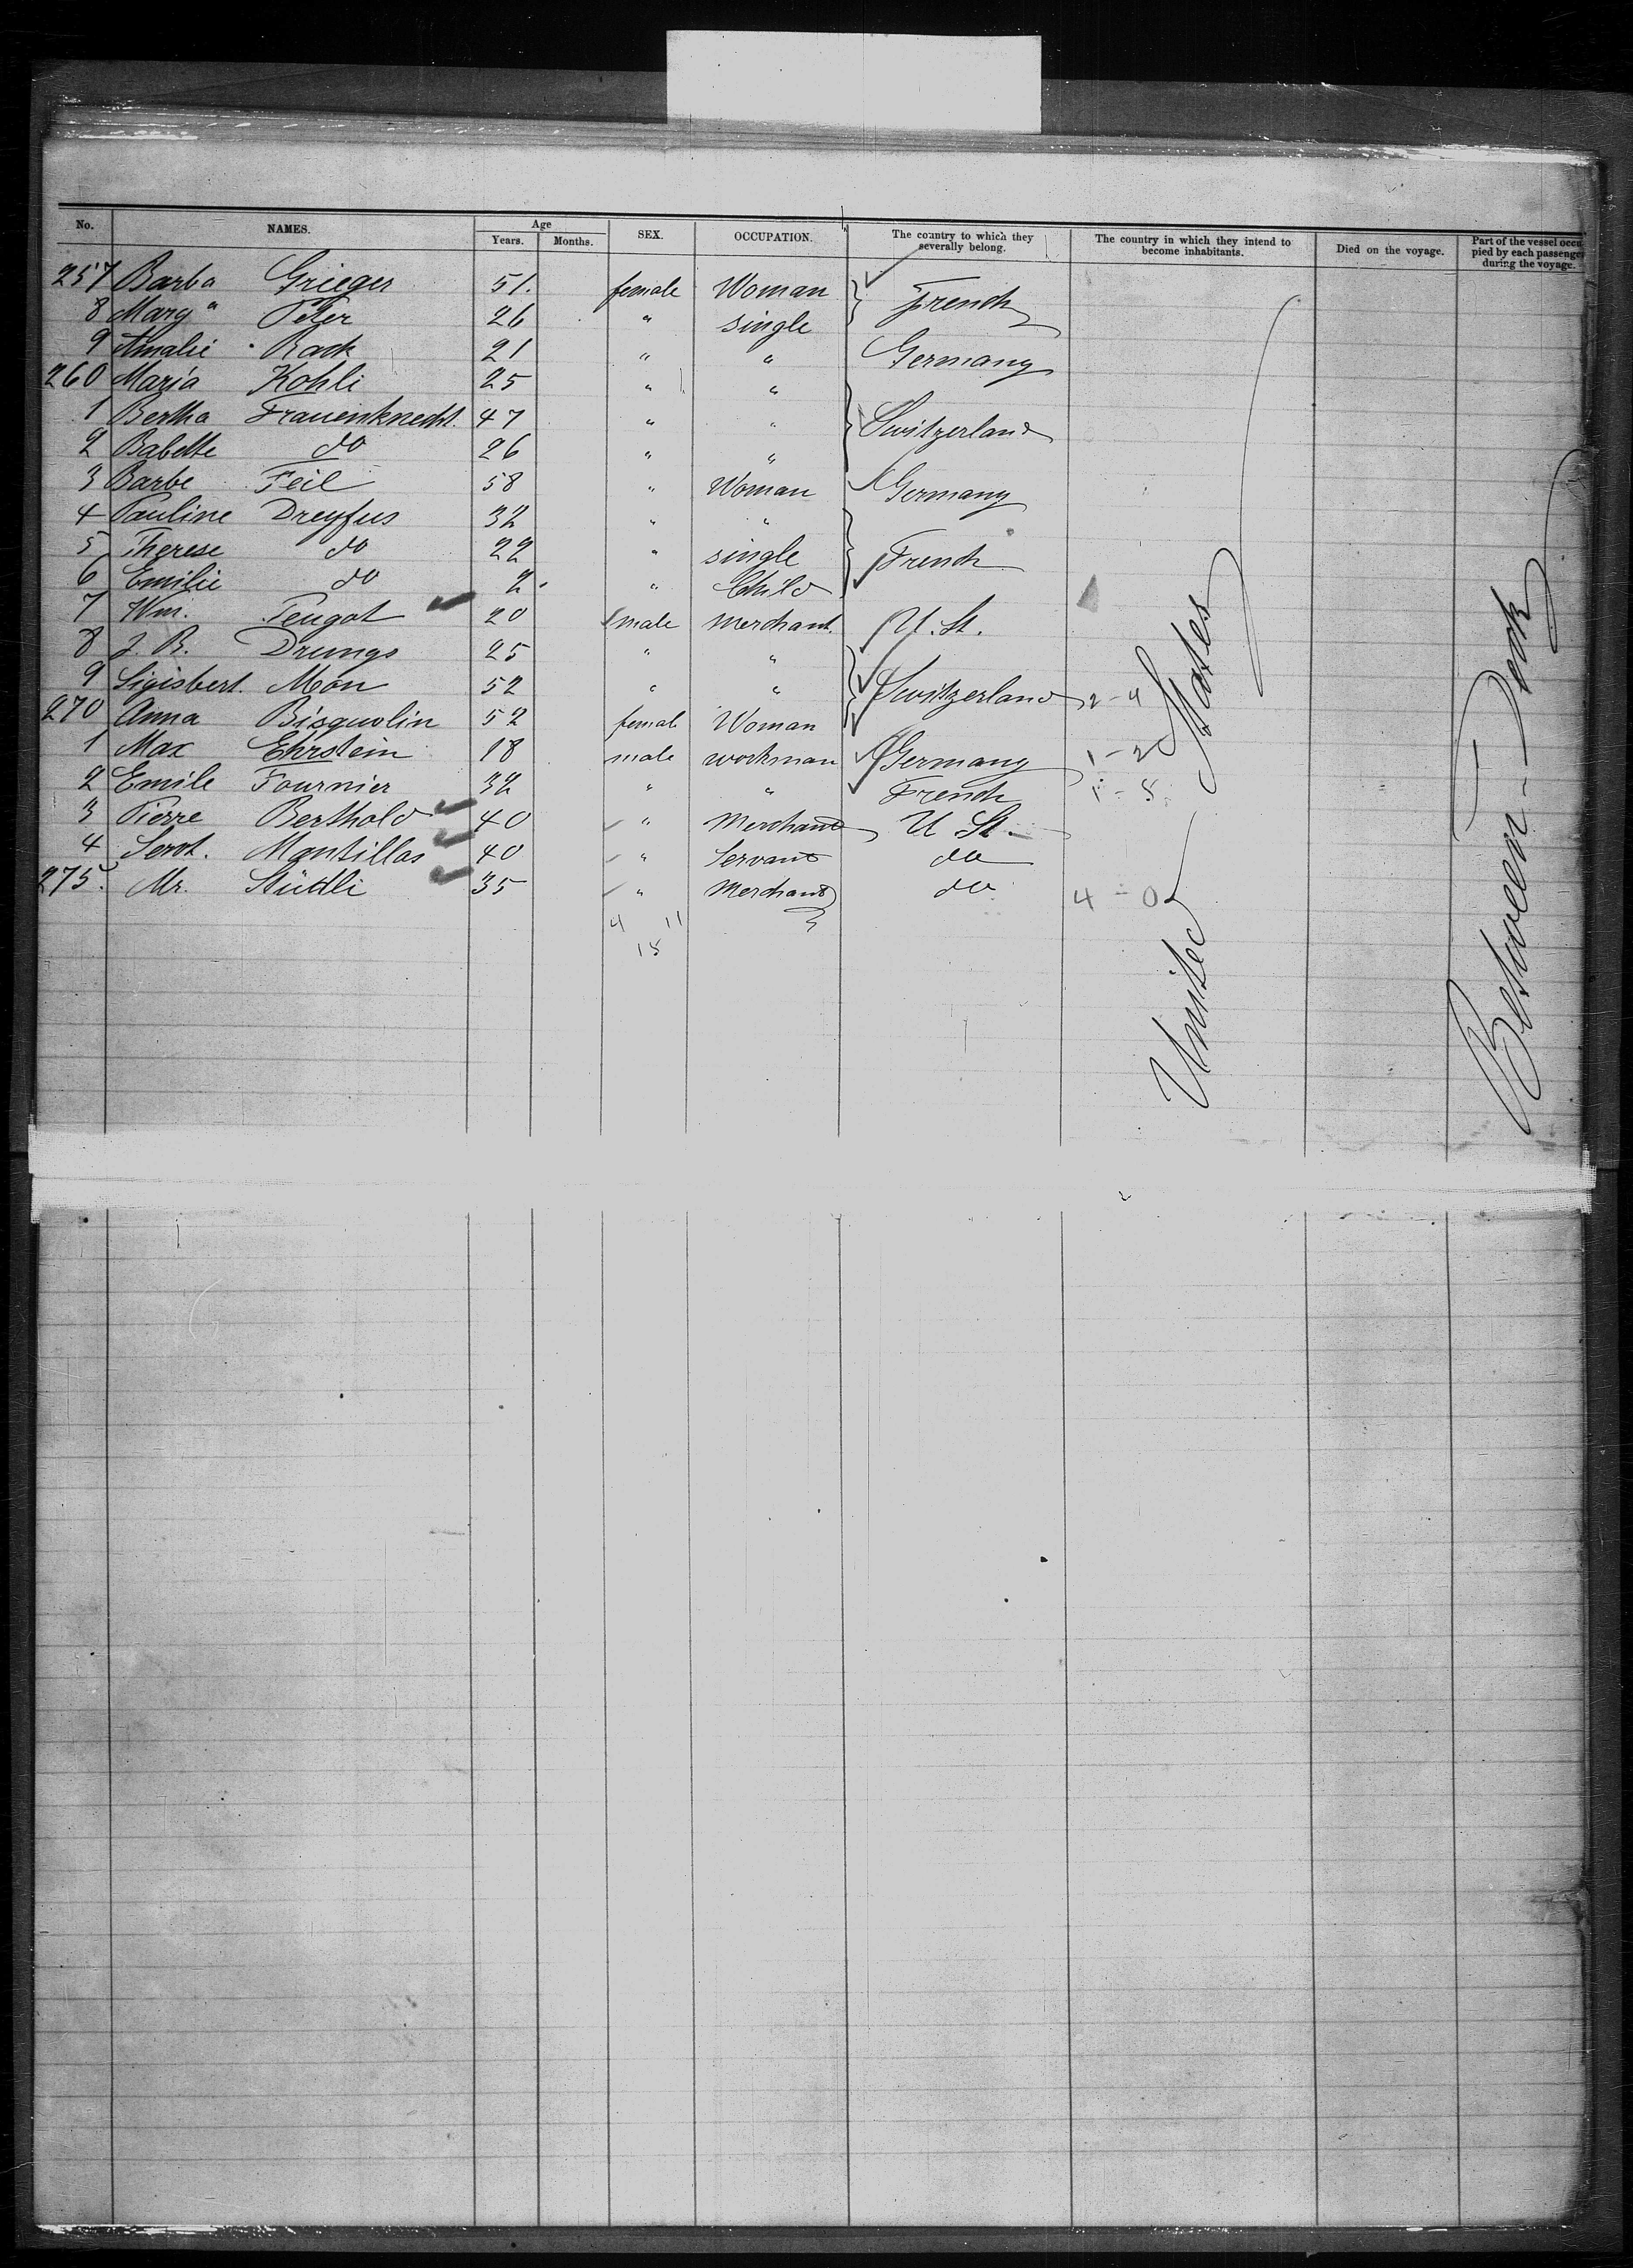 No. NAMES. Age Years. Months. SEX. OCCUPATION. The country to which they severally belong. The country in which they intend to become inhabitants. Died on the voyage. Part of the vessel occupied by each passenger during the voyage.
257 Barba Grieger 51. female Woman French
8 Marg a Peter 26 " single
9 Amalie Rack 21 " " Germany
260 Maria Kohli 25 " "
1 Bertha Frauenknecht. 47 " " Switzerland
2 Babette do 26 " "
3 Barbe Feil 58 " Woman Germany
4 Pauline Dreyfus 32 " "
5 Therese do 22 " single French
6 Emilie do 2 " Child
7 Wm. Peugot 20 male merchant. U. St.
8 J. B. Drungs 25 " "
9 Sigisbert. Mon 52 " " Switzerland 2-4
270 Anna Bisquolin 52 female Woman
1 Max Ehrstein 18 male workman Germany 1-2
2 Emile Fournier 32 " " French 1-8
3 Pierre Berthold 40 " Merchant U St.
4 Servt. Mantillas 40 " Servant do
275. Mr. Stüdli 35 " Merchant do 4-0
4 11
15
United States
Between-Deck